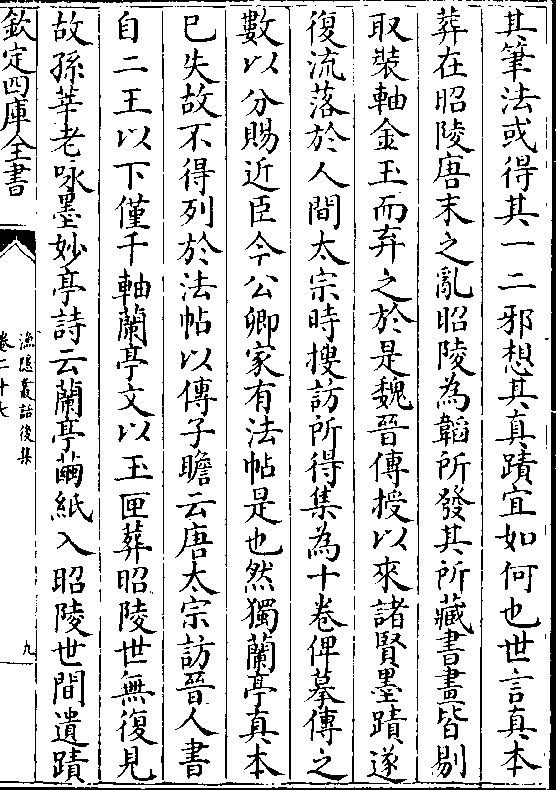 其筆法或得其一二邪想其真蹟宜如何也世言真本
葬在昭陵唐末之亂昭陵為韜所發其所藏書畫皆剔
取裝軸金玉而弃之於是魏晉傳授以來諸賢墨蹟遂
復流落於人間太宗時搜訪所得集為十卷俾摹傳之
數以分賜近臣今公卿家有法帖是也然獨蘭亭真本
已失故不得列於法帖以傳子瞻云唐太宗訪晉人書
自二王以下僅千軸蘭亭文以玉匣葬昭陵世無復見
故孫莘老咏墨妙亭詩云蘭亭繭紙入昭陵世間遺蹟
欽定四庫全書
漁隱叢話後集
卷二十七
九